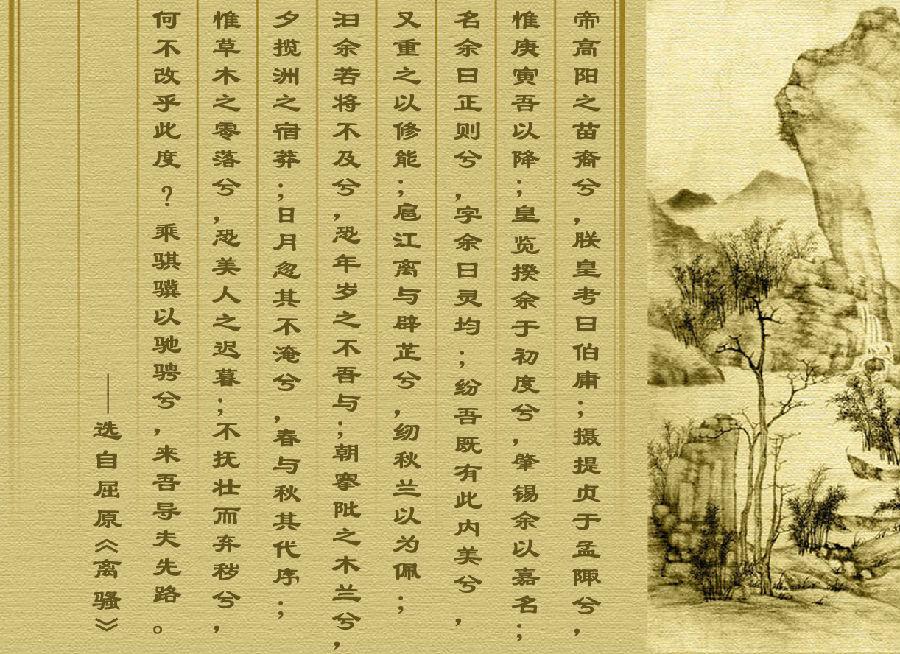 帝高阳之苗裔兮，朕皇考曰伯庸；摄提贞于孟陬兮，
惟庚寅吾以降；皇览揆余于初度兮，肇锡余以嘉名；
名余曰正则兮，字余曰灵均；纷吾既有此内美兮，
又重之以修能；扈江离与辟芷兮，纫秋兰以为佩；
汩余若将不及兮，恐年岁之不吾与；朝搴阰之木兰兮，
夕揽洲之宿莽；日月忽其不淹兮，春与秋其代序；
惟草木之零落兮，恐美人之迟暮；不抚壮而弃秽兮，
何不改乎此度？乘骐骥以驰骋兮，来吾导夫先路。
——选自屈原《离骚》